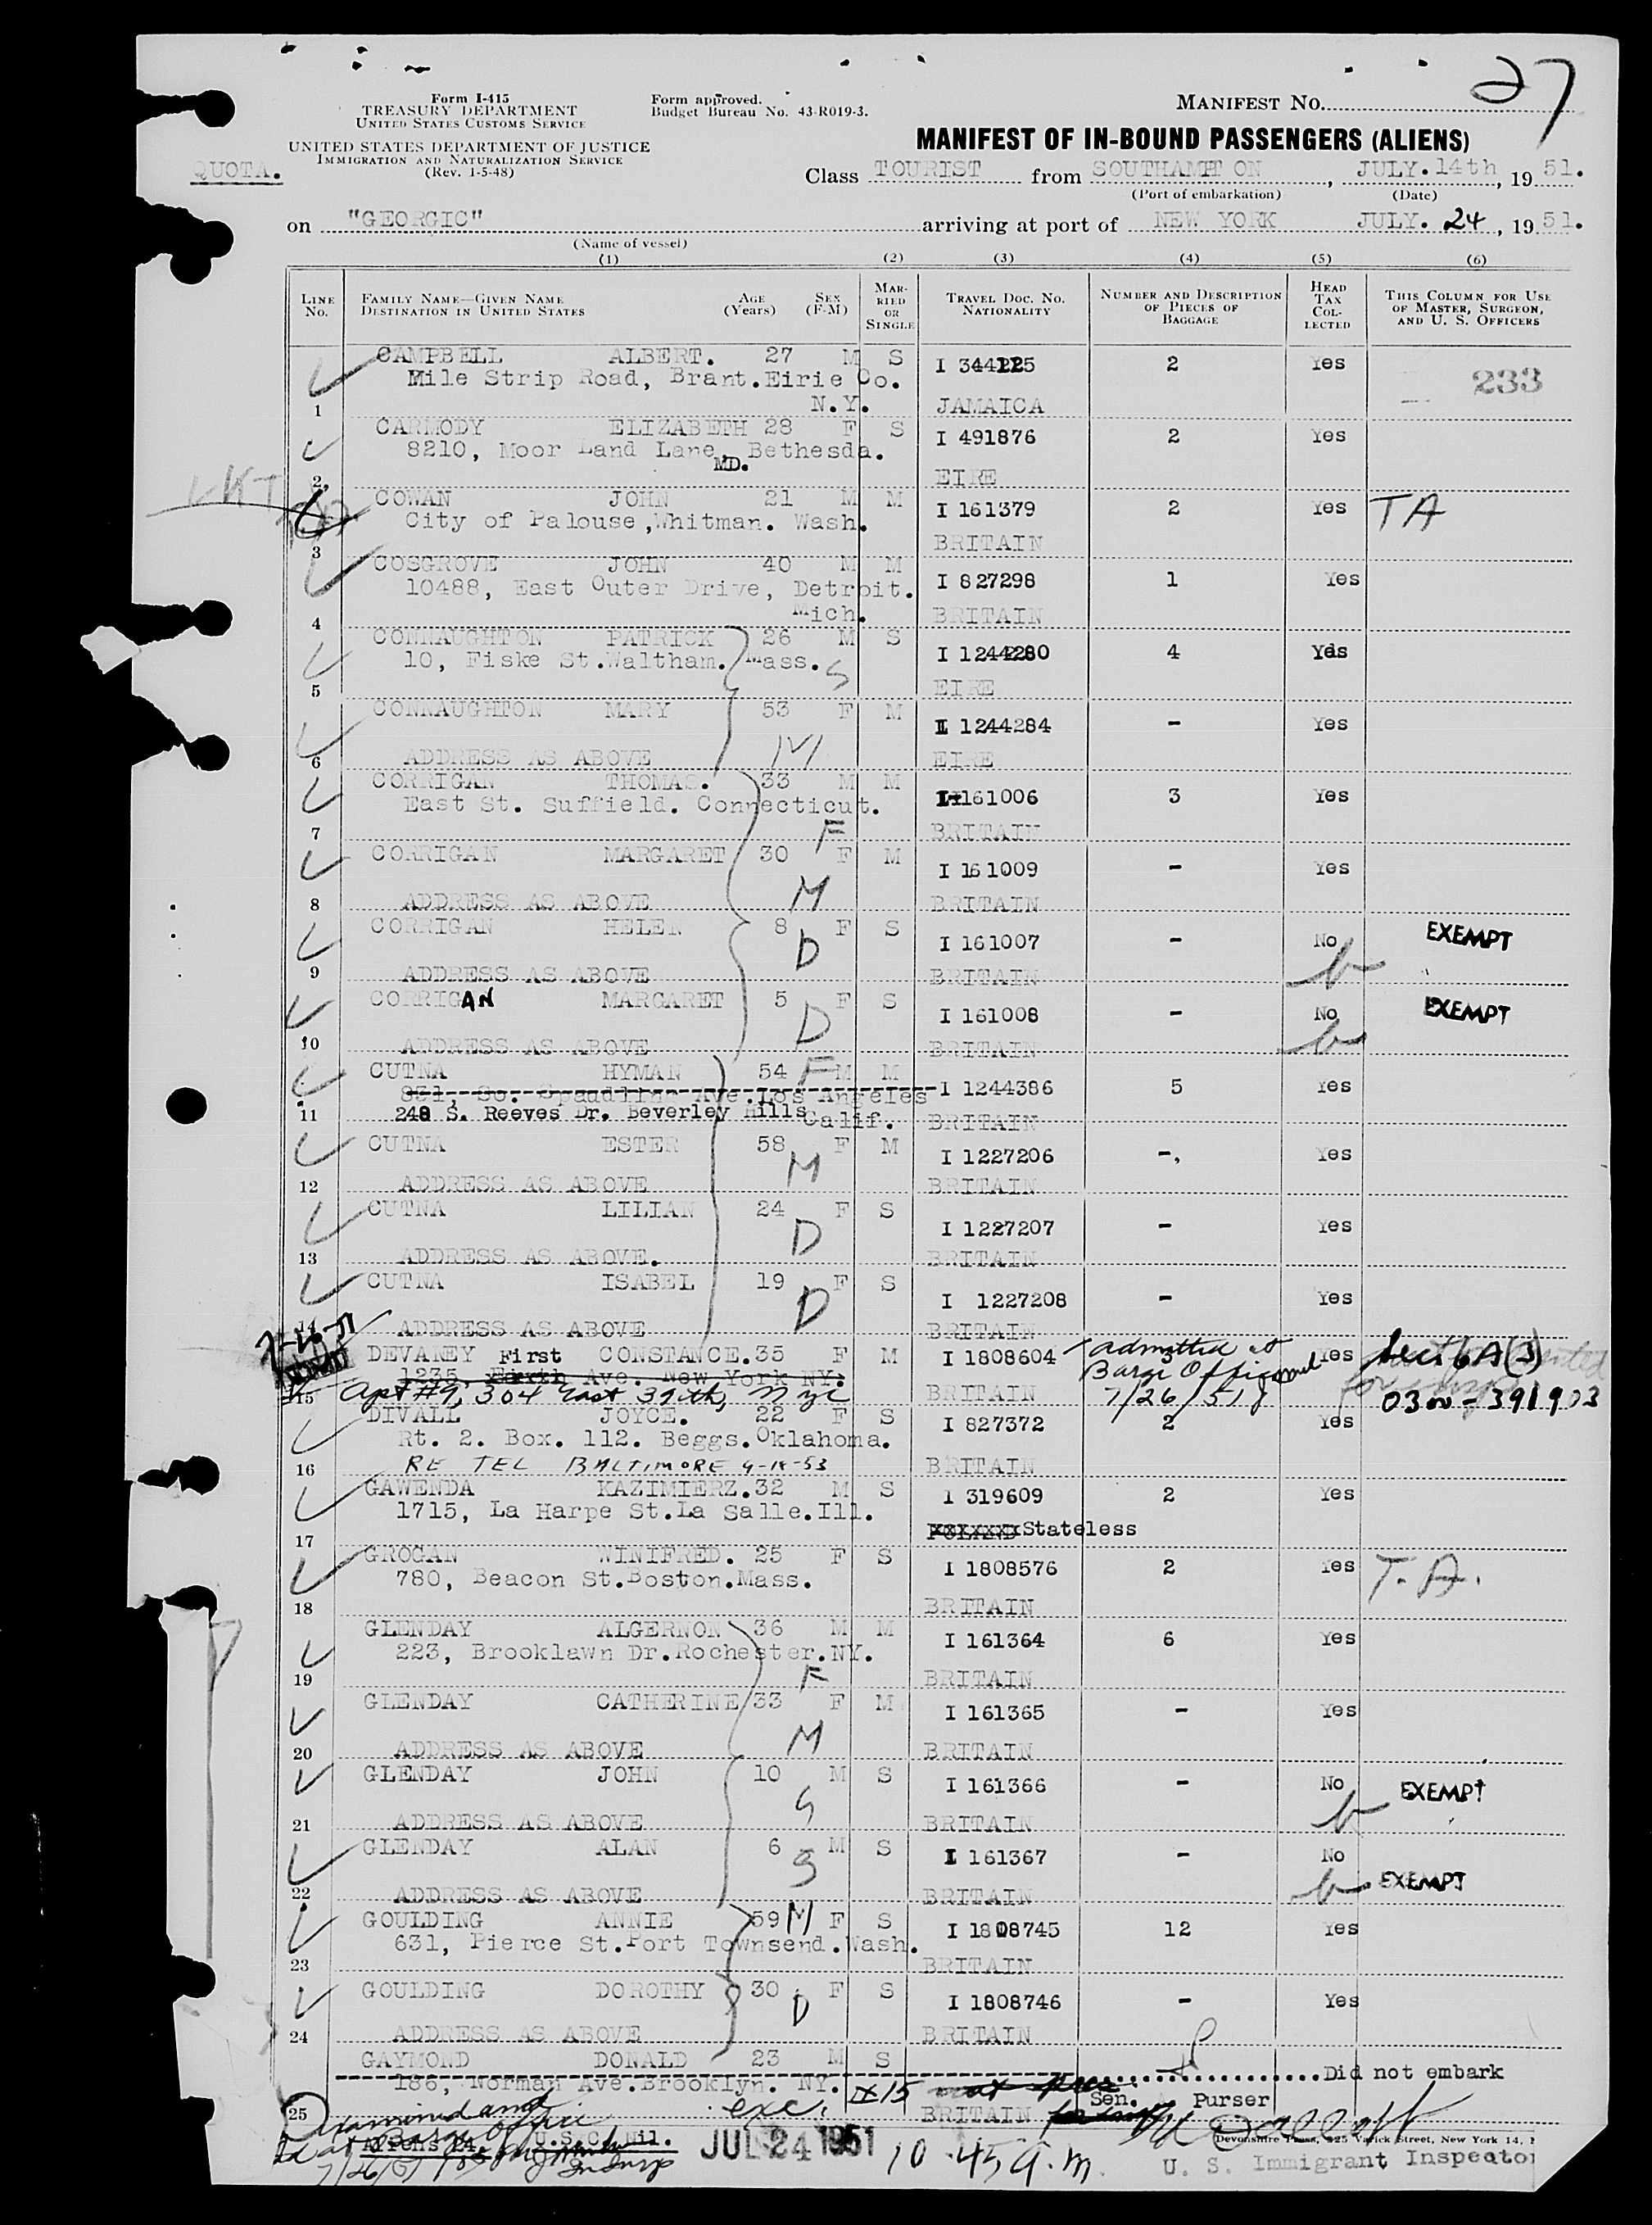 27
Form I-415
TREASURY DEPARTMENT
UNITED STATES CUSTOMS SERVICE
UNITED STATES DEPARTMENT OF JUSTICE
IMMIGRATION AND NATURALIZATION SERVICE
(Rev. 1-5-48)
Form approved.
Budget Bureau No. 43-R019-3.
MANIFEST No.
MANIFEST OF IN-BOUND PASSENGERS (ALIENS)
QUOTA.
Class TOURIST from SOUTHAMPTON, JULY.14th, 19 51.
(Port of embarkation) (Date)
on "GEORGIC" arriving at port of NEW YORK JULY. 24, 19 51.
(Name of vessel)
(1) (2) (3) (4) (5) (6)
LINE No. FAMILY NAME—GIVEN NAME DESTINATION IN UNITED STATES AGE (Years) SEX (F-M) MARRIED OR SINGLE TRAVEL DOC. NO. NATIONALITY NUMBER AND DESCRIPTION OF PIECES OF BAGGAGE HEAD TAX COLLECTED THIS COLUMN FOR USE OF MASTER, SURGEON, AND U. S. OFFICERS
CAMPBELL ALBERT. 27 M S I 344225 2 Yes 233
Mile Strip Road, Brant.Eirie Co.
1 N.Y. JAMAICA
CARMODY ELIZABETH 28 F S I 491876 2 Yes
8210, Moor Land Lane, Bethesda.
MD.
2 EIRE
COWAN JOHN 21 M M I 161379 2 Yes TA
City of Palouse,Whitman. Wash.
3 BRITAIN
COSGROVE JOHN 40 M M I 827298 1 Yes
10488, East Outer Drive, Detroit.
4 Mich. BRITAIN
CONNAUGHTON PATRICK 26 M S I 1244280 4 Yes
10, Fiske St.Waltham. Mass. S
5 EIRE
CONNAUGHTON MARY 53 F M I 1244284 - Yes
6 ADDRESS AS ABOVE M EIRE
CORRIGAN THOMAS. 33 M M I 161006 3 Yes
East St. Suffield. Connecticut.
7 F BRITAIN
CORRIGAN MARGARET 30 F M I 161009 - Yes
8 ADDRESS AS ABOVE M BRITAIN
CORRIGAN HELEN 8 F S I 161007 - No EXEMPT
9 ADDRESS AS ABOVE D BRITAIN
CORRIGAN MARGARET 5 F S I 161008 - No EXEMPT
10 ADDRESS AS ABOVE D BRITAIN
CUTNA HYMAN 54 F M M I 1244386 5 Yes
831, So. Spaudling Ave.Los Angeles
11 248 S. Reeves Dr. Beverley Hills Calif. BRITAIN
CUTNA ESTER 58 F M I 1227206 -, Yes
12 ADDRESS AS ABOVE M BRITAIN
CUTNA LILIAN 24 F S I 1227207 - Yes
13 ADDRESS AS ABOVE. D BRITAIN
CUTNA ISABEL 19 F S I 1227208 - Yes
14 ADDRESS AS ABOVE D BRITAIN
DEVANEY CONSTANCE. 35 F M I 1808604 admitted at Yes Sect 6A(3)
1235, First Ave. New York NY. Barge Office
15 Apt #9, 304 East 39th, NYC BRITAIN 7/26/51 0300-391903
DIVALL JOYCE. 22 F S I 827372 2 Yes
Rt. 2. Box. 112. Beggs.Oklahoma.
16 RE TEL BALTIMORE 9-18-53 BRITAIN
GAWENDA KAZIMIERZ. 32 M S I 319609 2 Yes
1715, La Harpe St.La Salle.Ill.
17 Stateless
GROGAN WINIFRED. 25 F S I 1808576 2 Yes T.A.
780, Beacon St.Boston.Mass.
18 BRITAIN
GLENDAY ALGERNON 36 M M I 161364 6 Yes
223, Brooklawn Dr.Rochester.NY.
19 F BRITAIN
GLENDAY CATHERINE 33 F M I 161365 - Yes
20 ADDRESS AS ABOVE M BRITAIN
GLENDAY JOHN 10 M S I 161366 - No EXEMPT
21 ADDRESS AS ABOVE S BRITAIN
GLENDAY ALAN 6 M S I 161367 - No EXEMPT
22 ADDRESS AS ABOVE S BRITAIN
GOULDING ANNIE 59 M F S I 1808745 12 Yes
631, Pierce St.Port Townsend.Wash.
23 BRITAIN
GOULDING DOROTHY 30 F S I 1808746 - Yes
24 ADDRESS AS ABOVE D BRITAIN
GAYMOND DONALD 23 M S Did not embark
186, Norman Ave.Brooklyn. NY.
25 exc. 15 BRITAIN Sen. Purser
Aliens 24. U.S.C. Nil. JUL 24 1951 10.45 a.m.
Devonshire Press, 225 Varick Street, New York 14,
U. S. Immigrant Inspector